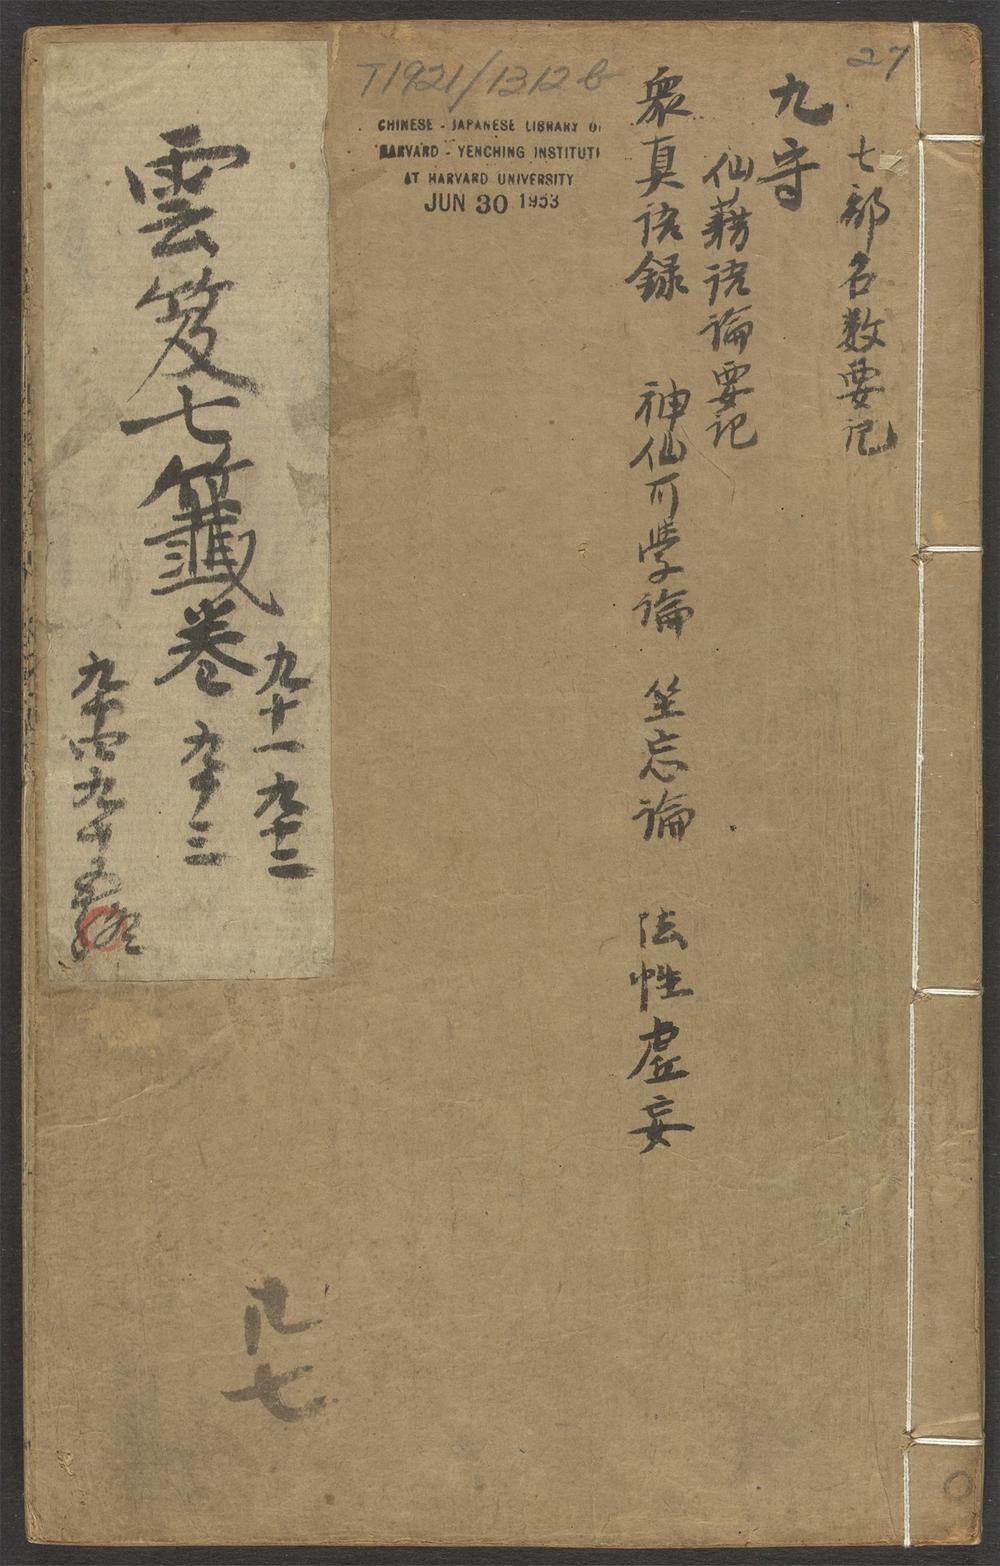 27
七部名数要记
九守
仙藉语論要记
衆真语録　神仙可學論　坐忘論　法性虚妄
T1921/1312b
CHINESE - JAPANESE LIBRARY O
HARVARD - YENCHING INSTITUT
AT HARVARD UNIVERSITY
JUN 30 1953
雲笈七籤卷
九十一 九十二
九十三
九十四九十五
七